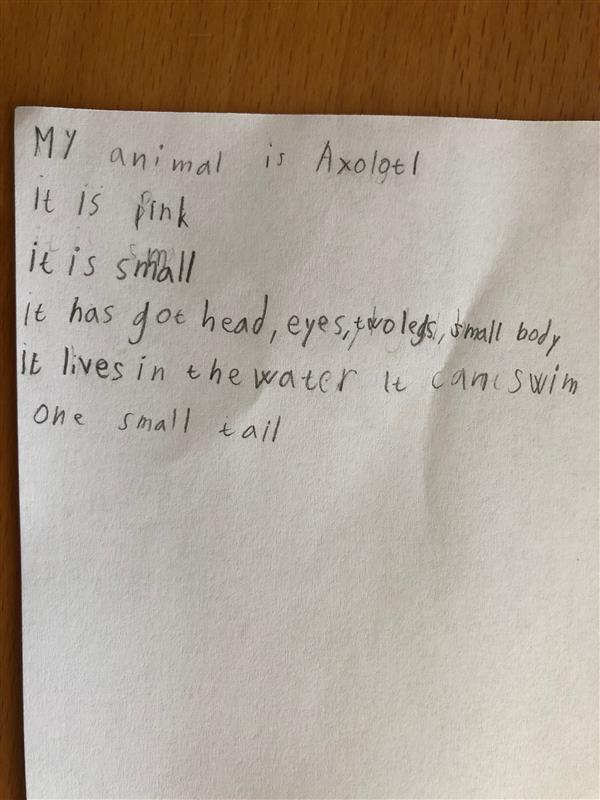 MY animal is Axolotl
it is pink
it is small
it has got head, eyes, two legs, small body
it lives in the water It can swim
One small tail